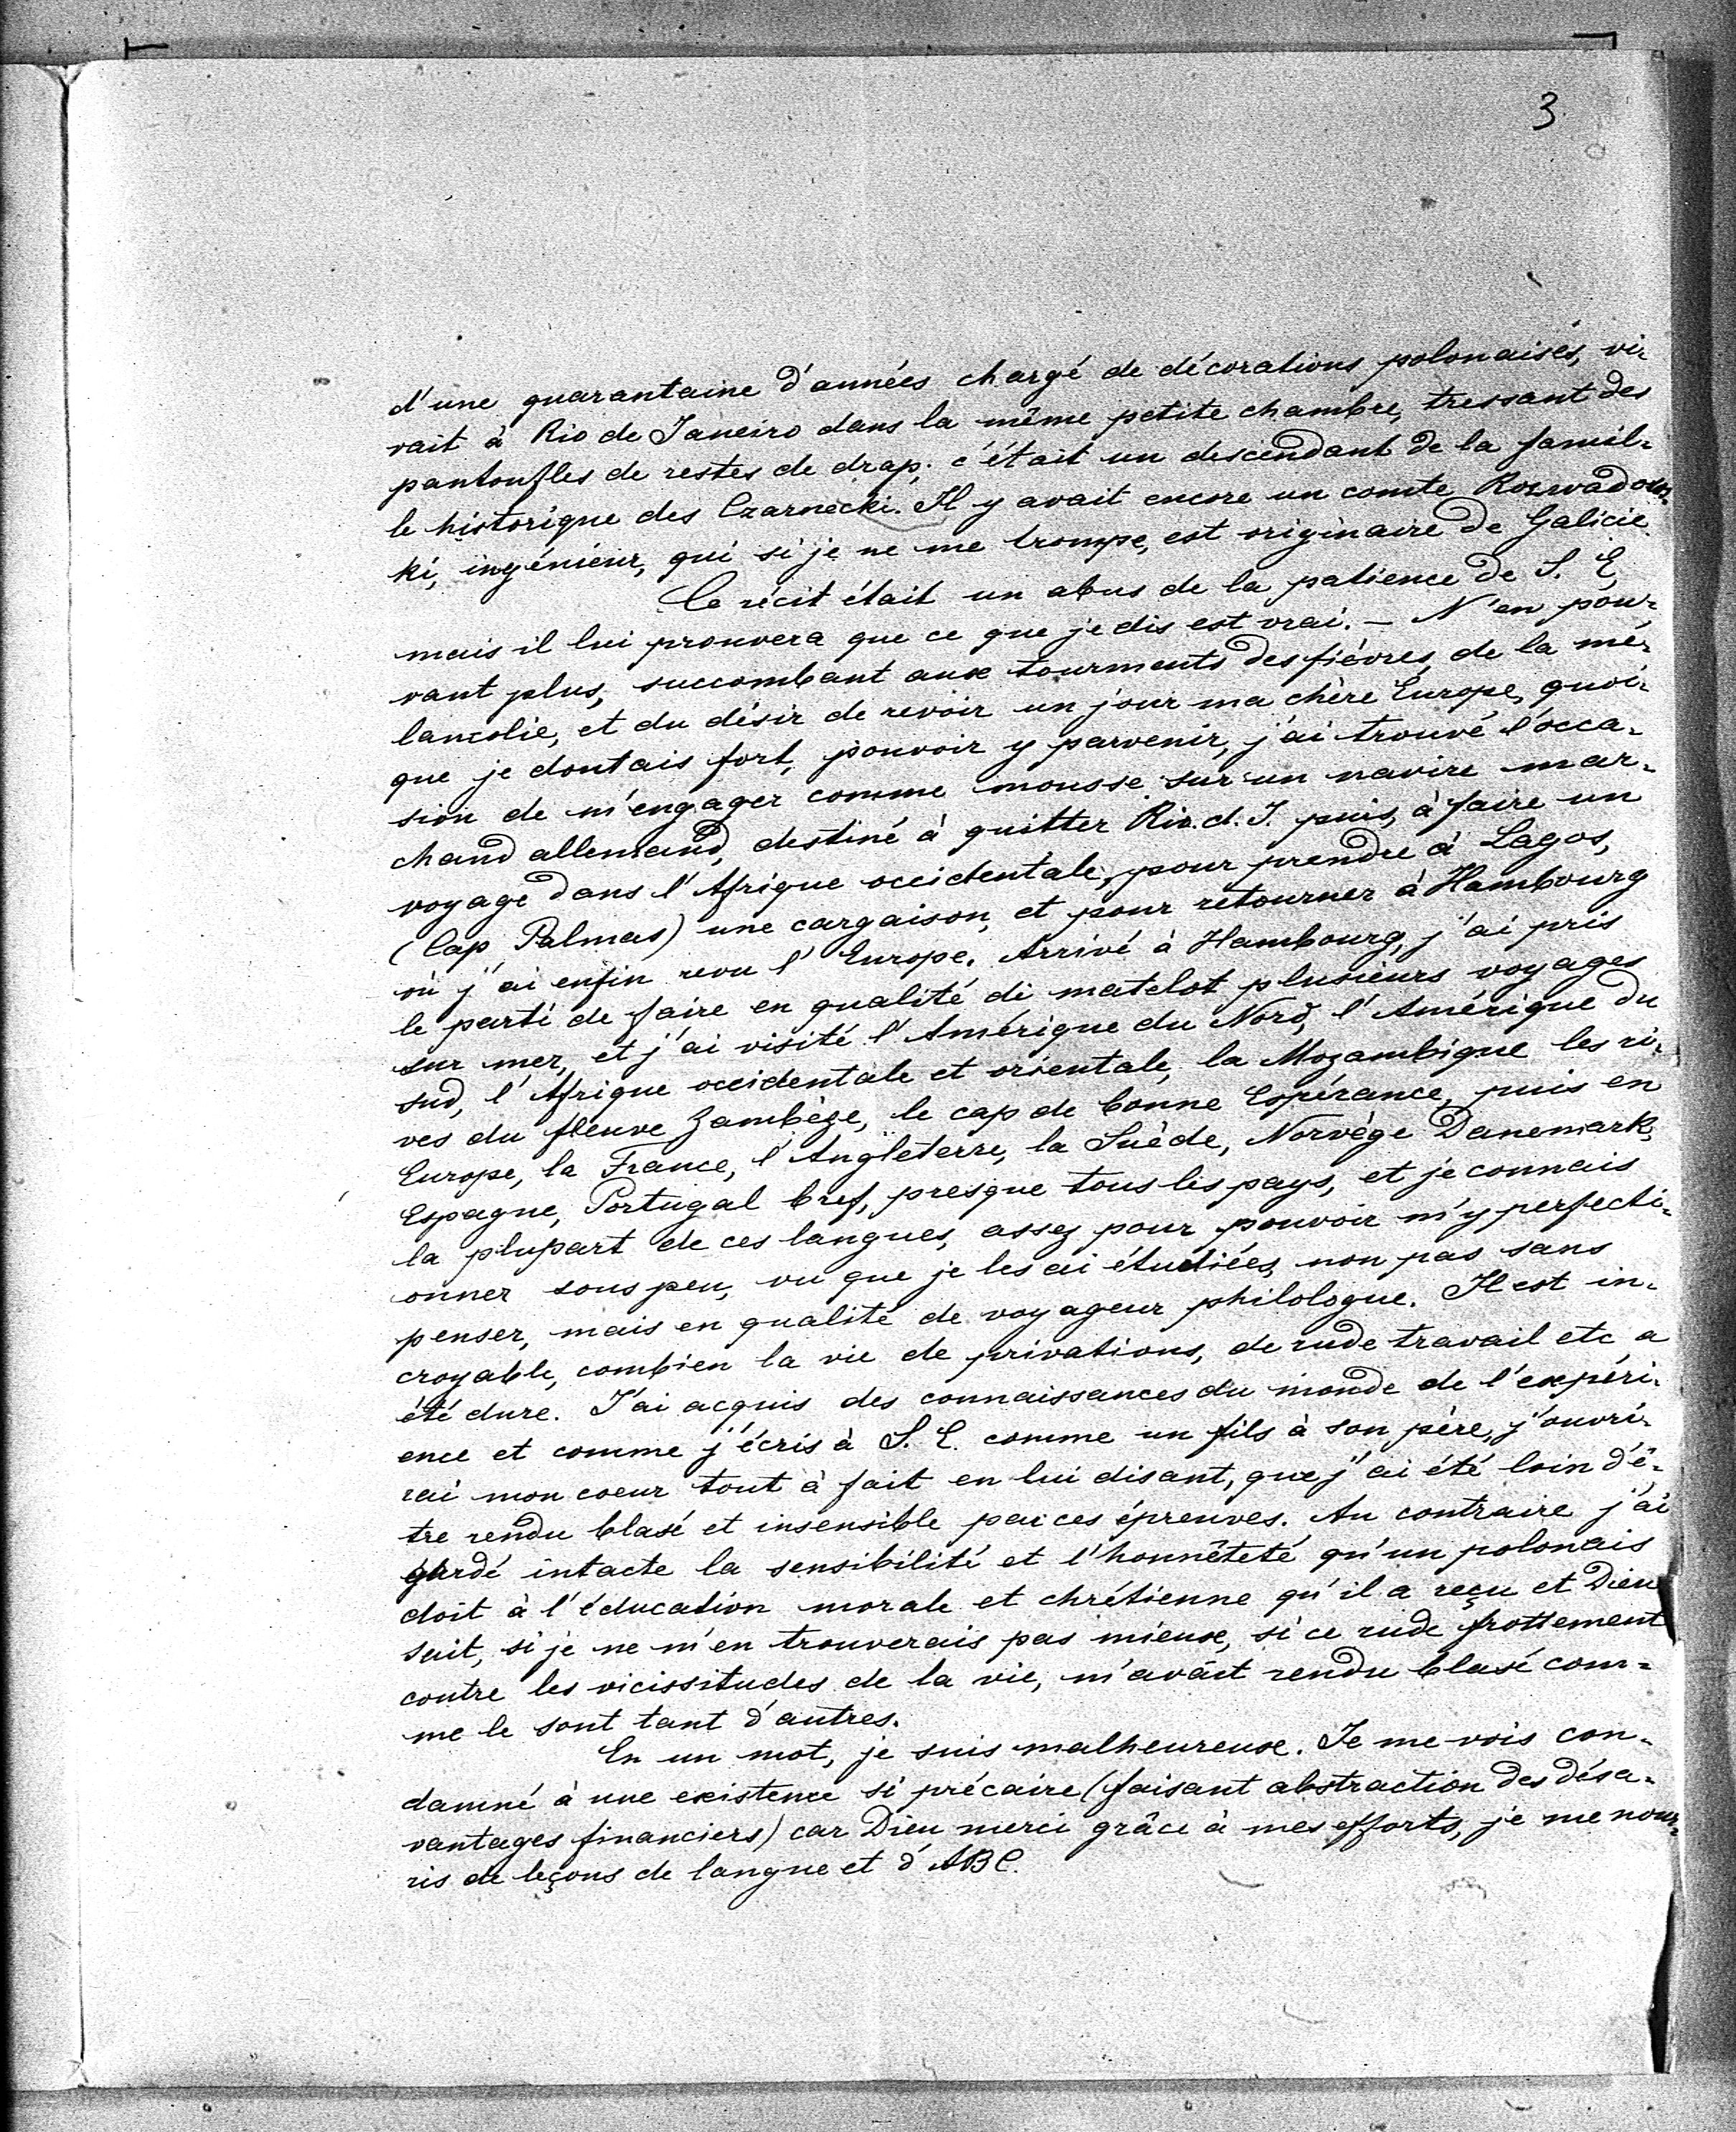 3
d'une quarantaine d'années chargé de décorations polonaises, vi-
vait à Rio de Janeiro dans la même petite chambre, tressant des
pantoufles de restes de drap; c'était un descendant de la famil-
le historique des Czarnecki. Il y avait encore un comte Rozwadows-
ki, ingénieur, qui si je ne me trompe, est originaire de Galicie.
Ce récit était un abus de la patience de S. E,
mais il lui prouvera que ce que je dis est vrai. — N'en pou-
vant plus, succombant aux tourments des fièvres, de la mé-
lancolie, et du désir de revoir un jour ma chère Europe, quoi-
que je doutais fort, pouvoir y parvenir, j'ai trouvé l'occa-
sion de m'engager comme mousse sur un navire mar-
chand allemand, destiné à quitter Rio. d. J. puis, à faire un
voyage dans l'Afrique occidentale, pour prendre à Lagos,
(Cap Palmas) une cargaison, et pour retourner à Hambourg
où j'ai enfin revu l'Europe. Arrivé à Hambourg, j'ai pris
le parti de faire en qualité de matelot plusieurs voyages
sur mer, et j'ai visité l'Amérique du Nord, l'Amérique du
sud, l'Afrique occidentale et orientale, la Mozambique les ri-
ves du fleuve Zambèze, le cap de bonne Espérance, puis en
Europe, la France, l'Angleterre, la Suède, Norvège Danemark,
Espagne, Portugal bref, presque tous les pays, et je connais
la plupart de ces langues, assez pour pouvoir m'y perfecti-
onner sous peu, vu que je les ai étudiées, non pas sans
penser, mais en qualité de voyageur philologue. Il est in-
croyable, combien la vie de privations, de rude travail etc, a
été dure. J'ai acquis des connaissances du monde de l'expéri-
ence et comme j'écris à S. E. comme un fils à son père, j'ouvri-
rai mon coeur tout à fait en lui disant, que j'ai été loin d'ê-
tre rendu blasé et insensible par ces épreuves. Au contraire j'ai
gardé intacte la sensibilité et l'honnêteté qu'un polonais
doit à l'éducation morale et chrétienne qu'il a reçu et Dieu
sait, si je ne m'en trouverais pas mieux, si ce rude frottement
contre les vicissitudes de la vie, m'avait rendu blasé com-
me le sont tant d'autres.
En un mot, je suis malheureux. Je me vois con-
damné à une existence si précaire (faisant abstraction des désa-
vantages financiers) car Dieu merci grâce à mes efforts, je me nour-
ris de leçons de langue et d'ABC.